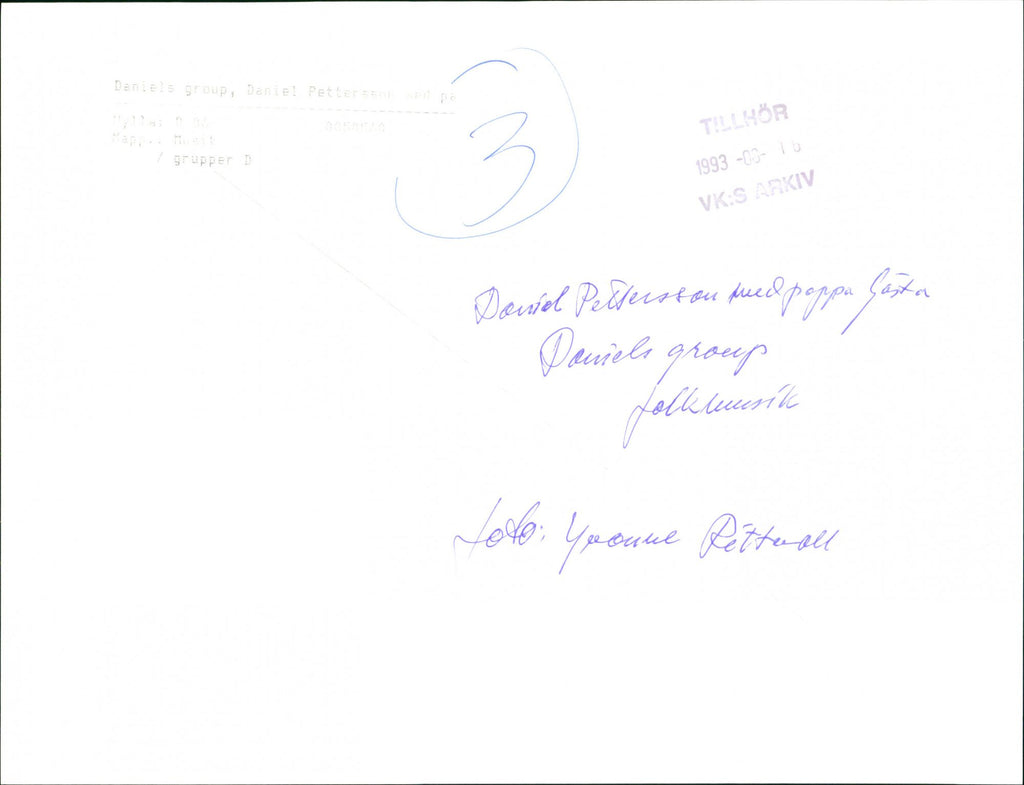 Daniels group, Daniel Pettersson med pa
Mapp:. Musik
/ grupper D
3
TILLHÖR
1993 -08- 18
VK:S ARKIV
Daniel Pettersson med pappa Gösta
Daniels group
folkmusik
foto: Yvonne Rittvall